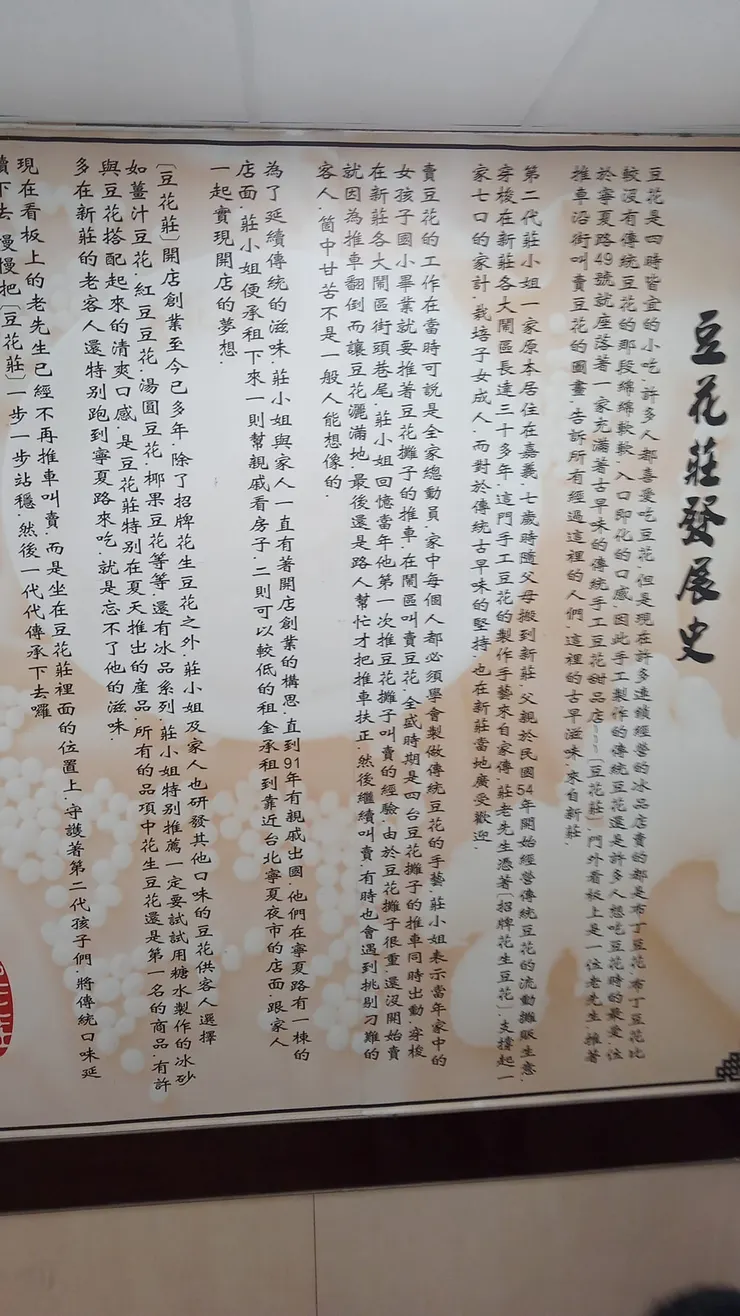 豆花莊發展史
豆花是四時皆宜的小吃.許多人都喜愛吃豆花.但是現在許多連鎖經營的冰品店賣的都是布丁豆花.布丁豆花比
較沒有傳統豆花的那段綿綿軟軟.入口即化的口感.因此手工製作的傳統豆花還是許多人想吃豆花時的最愛.位
於寧夏路49號就座落著一家充滿著古早味的傳統手工豆花甜品店~~~〔豆花莊〕.門外看板上是一位老先生.推著
推車沿街叫賣豆花的圖畫.告訴所有經過這裡的人們.這裡的古早滋味.來自新莊.
第二代莊小姐一家原本居住在嘉義.七歲時隨父母搬到新莊.父親於民國54年開始經營傳統豆花的流動攤販生意.
穿梭在新莊各大鬧區長達三十多年.這門手工豆花的製作手藝來自家傳.莊老先生憑著〔招牌花生豆花〕.支撐起一
家七口的家計.栽培子女成人.而對於傳統古早味的堅持.也在新莊當地廣受歡迎.
賣豆花的工作在當時可說是全家總動員.家中每個人都必須學會製做傳統豆花的手藝.莊小姐表示當年家中的
女孩子國小畢業就要推著豆花攤子的推車.在鬧區叫賣豆花.全盛時期是四台豆花攤子的推車同時出動.穿梭
在新莊各大鬧區街頭巷尾.莊小姐回憶當年他第一次推豆花攤子叫賣的經驗.由於豆花攤子很重.還沒開始賣
就因為推車翻倒而讓豆花灑滿地.最後還是路人幫忙才把推車扶正.然後繼續叫賣.有時也會遇到挑剔刁難的
客人.箇中甘苦不是一般人能想像的.
為了延續傳統的滋味.莊小姐與家人一直有著開店創業的構思.直到91年有親戚出國.他們在寧夏路有一棟的
店面.莊小姐便承租下來一則幫親戚看房子.二則可以較低的租金承租到靠近台北寧夏夜市的店面.跟家人
一起實現開店的夢想.
〔豆花莊〕開店創業至今已多年.除了招牌花生豆花之外.莊小姐及家人也研發其他口味的豆花供客人選擇
如薑汁豆花.紅豆豆花.湯圓豆花.椰果豆花等等.還有冰品系列.莊小姐特別推薦一定要試試用糖水製作的冰砂
與豆花搭配起來的清爽口感.是豆花莊特別在夏天推出的產品.所有的品項中花生豆花還是第一名的商品.有許
多在新莊的老客人還特別跑到寧夏路來吃.就是忘不了他的滋味.
現在看板上的老先生已經不再推車叫賣.而是坐在豆花莊裡面的位置上.守護著第二代孩子們.將傳統口味延
續下去.慢慢把〔豆花莊〕一步一步站穩.然後一代代傳承下去囉